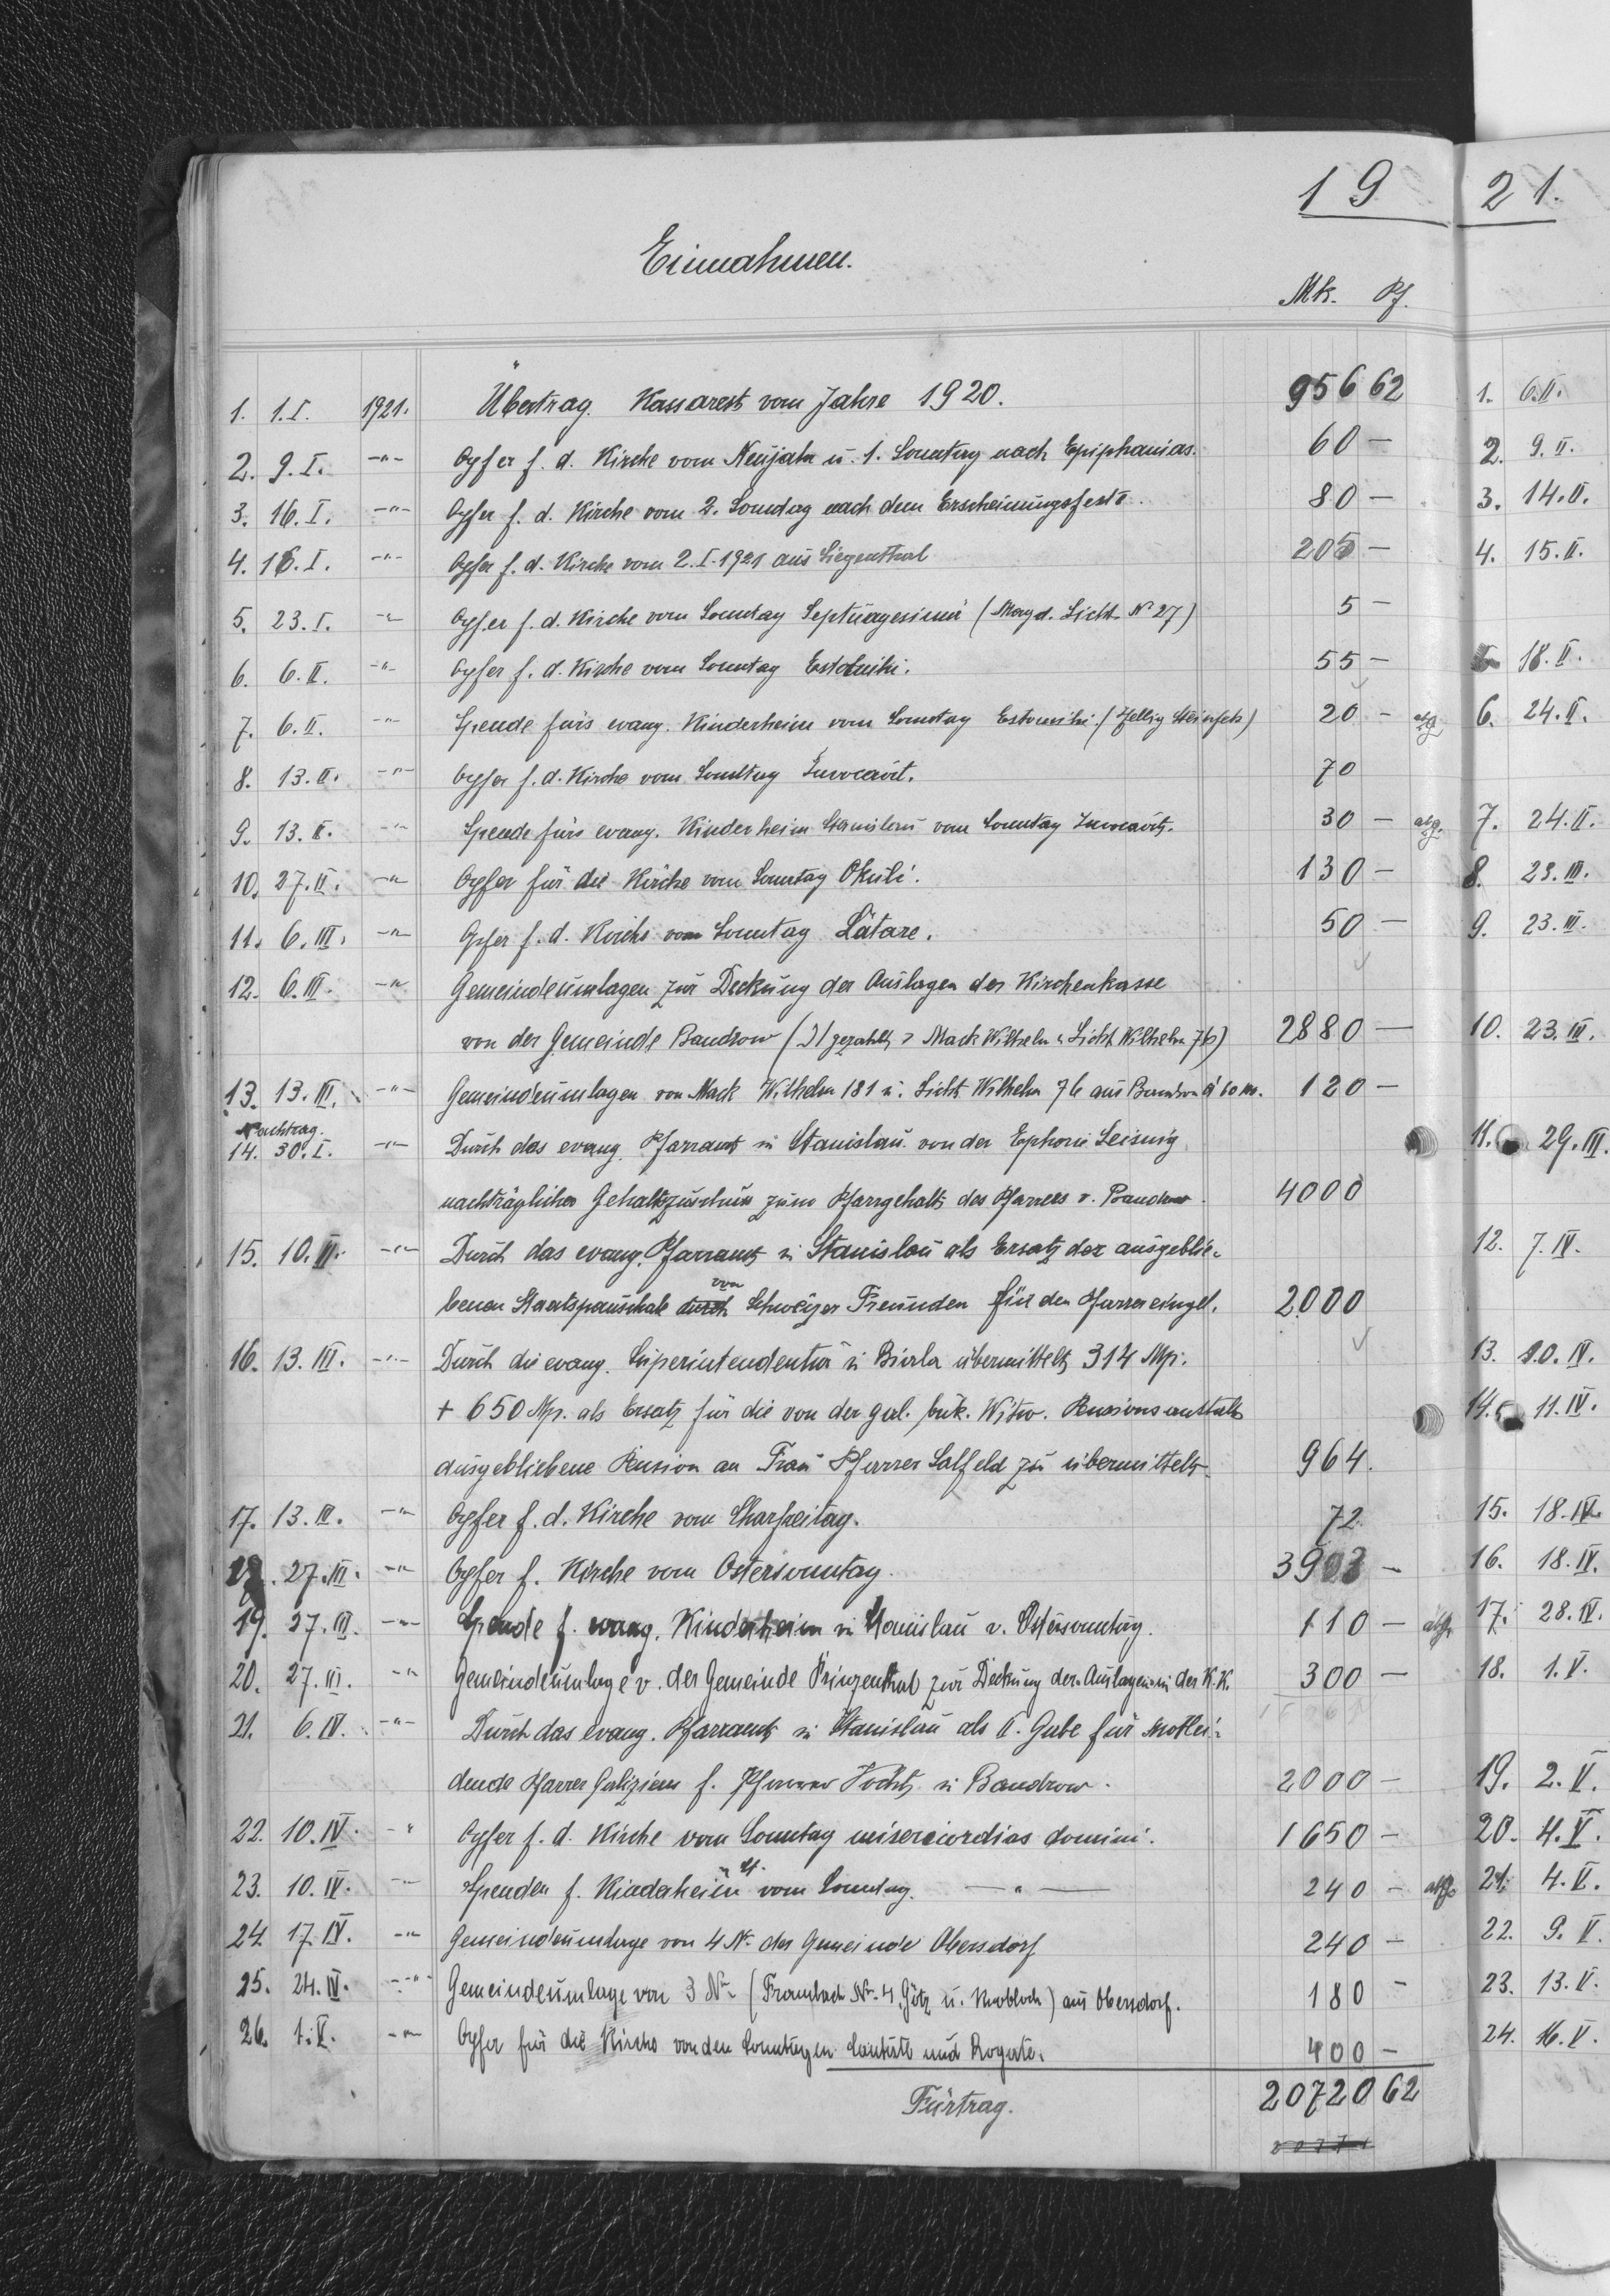 19 21.
Einnahmen.
Mk. Pf.
1. 1.I. 1921. Übertrag. Kassarest vom Jahre 1920. 956 62
2. 9.I. -"- Opfer f. d. Kirche vom Neujahr u. 1. Sonntag nach Epiphanias. 60 —
3. 16.I. -"- Opfer f. d. Kirche vom 2. Sonntag nach dem Erscheinungsfeste. 80 —
4. 16.I. -"- Opfer f. d. Kirche vom 2.I.1921 aus Siegenthal 205 —
5. 23.I. -"- Opfer f. d. Kirche vom Sonntag Septuagesimä (Magd. Licht N 27) 5 —
6. 6.II. -"- Opfer f. d. Kirche vom Sonntag Estomihi. 55 —
7. 6.II. -"- Spende fürs evang. Kinderheim vom Sonntag Estomihi. 20 — abg.
8. 13.II. -"- Opfer f. d. Kirche vom Sonntag Invocavit. 70
9. 13.II. -"- Spende fürs evang. Kinderheim Stanislau vom Sonntag Invocavit. 30 — abg.
10. 27.II. -"- Opfer für die Kirche vom Sonntag Okuli. 130 —
11. 6.III. -"- Opfer f. d. Kirche vom Sonntag Lätare. 50 —
12. 6.III. -"- Gemeindeumlagen zur Deckung der Auslagen der Kirchenkasse
von der Gemeinde Bandrow (gezahlt Mack Wilhelm u Licht Wilhelm 76) 2880 —
13. 13.III. -"- Gemeindeumlagen von Mack Wilhelm 181 u. Licht Wilhelm 76 aus Bandrow á 60 M. 120 —
Nachtrag.
14. 30.I. -"- Durch das evang. Pfarramt in Stanislau von der Ephorie Leisnig
nachträglicher Gehaltszuschuss zum Pfarrgehalt des Pfarrers v. Bandrow. 4000
15. 10.II. -"- Durch das evang. Pfarramt in Stanislau als Ersatz der ausgeblie-
benen Staatspauschale durch von Schweizer Freunden für den Pfarrer eingel. 2000
16. 13.III. -"- Durch die evang. Superintendentur in Biala übermittelt 314 Mp.
+ 650 Mp. als Ersatz für die von der gal. buk. Witw. Pensionsanstalt
ausgebliebene Pension an Frau Pfarrer Salfeld zu übermitteln. 964.
17. 13.III. -"- Opfer f. d. Kirche vom Charfreitag. 72.
18. 27.III. -"- Opfer f. Kirche vom Ostersonntag. 3903 —
19. 27.III. -"- Spende f. evang. Kinderheim in Stanislau v. Ostersonntag. 110 — abg.
20. 27.III. -"- Gemeindeumlage v. der Gemeinde Prinzenthal zur Deckung der Auslagen in der K.K. 300 —
21. 6.IV. -"- Durch das evang. Pfarramt in Stanislau als II. Gabe für notlei-
dende Pfarrer Galiziens f. Pfarrer in Bandrow. 2000 —
22. 10.IV. -" Opfer f. d. Kirche vom Sonntag misericordias domini. 1650 —
23. 10.IV. -"- Spenden f. Kinderheim St. vom Sonntag. —"— 240 — abg.
24. 17.IV. -"- Gemeindeumlage von 4 N. der Gemeinde Obersdorf 240 —
25. 24.IV. -"- Gemeindeumlage von 3 Nr. (Frambach Nr. 4, Götz u. Knobloch) aus Obersdorf. 180 —
26. 1.V. -"- Opfer für die Kirche von den Sonntagen Cantate und Rogate. 400 —
Fürtrag. 20720 62
1. 6.II.
2. 9.II.
3. 14.II.
4. 15.II.
5 18.II.
6. 24.II.
7. 24.II.
8. 23.III.
9. 23.III.
10. 23.III.
11. 29.III.
12. 7.IV.
13. 10.IV.
14. 11.IV.
15. 18.IV.
16. 18.IV.
17. 28.IV.
18. 1.V.
19. 2.V.
20. 4.V.
21. 4.V.
22. 9.V.
23. 13.V.
24. 16.V.